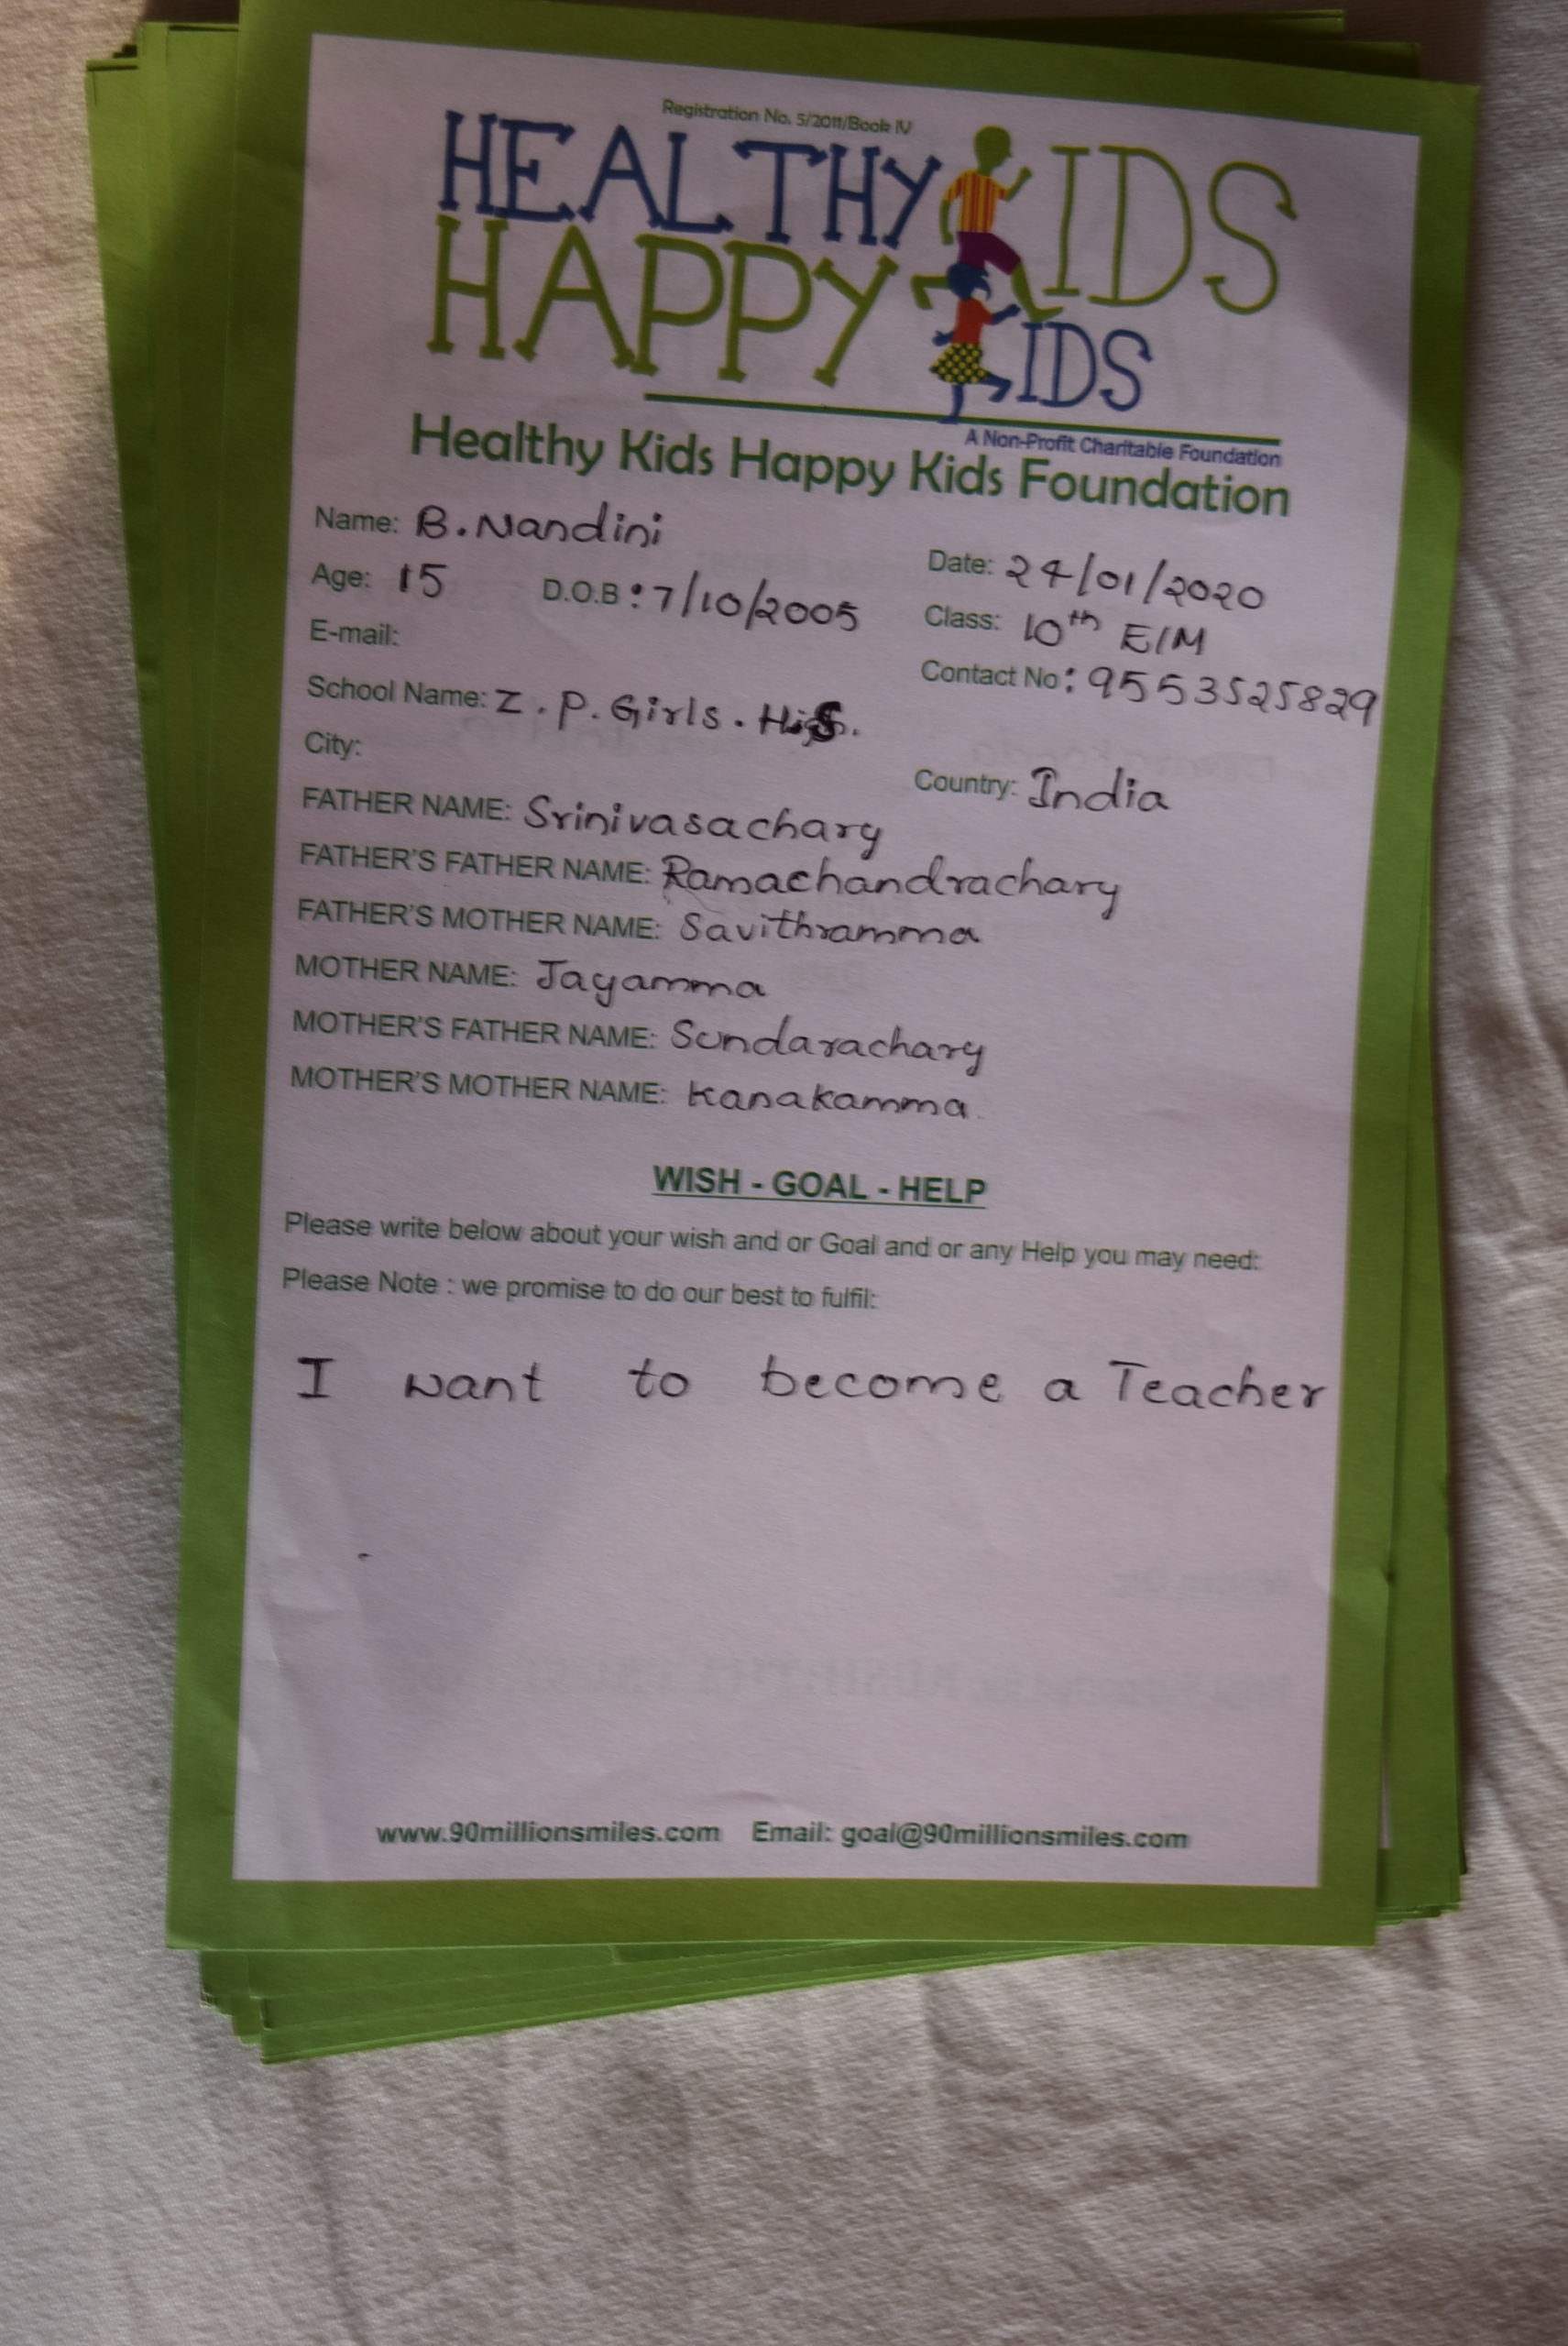 Registration No. 5/2011/Book IV
HEALTHY KIDS
HAPPY KIDS
A Non-Profit Charitable Foundation
Healthy Kids Happy Kids Foundation
Name: B. Nandini
Date: 24/01/2020
Age: 15 D.O.B : 7/10/2005
Class: 10th E/M
E-mail:
Contact No : 9553525829
School Name: Z. P. Girls.
City:
Country: India
FATHER NAME: Srinivasachary
FATHER'S FATHER NAME: Ramachandrachary
FATHER'S MOTHER NAME: Savithramma
MOTHER NAME: Jayamma
MOTHER'S FATHER NAME: Sundarachary
MOTHER'S MOTHER NAME: Kanakamma.
WISH - GOAL - HELP
Please write below about your wish and or Goal and or any Help you may need:
Please Note : we promise to do our best to fulfil:
I want to become a Teacher
www.90millionsmiles.com Email: goal@90millionsmiles.com